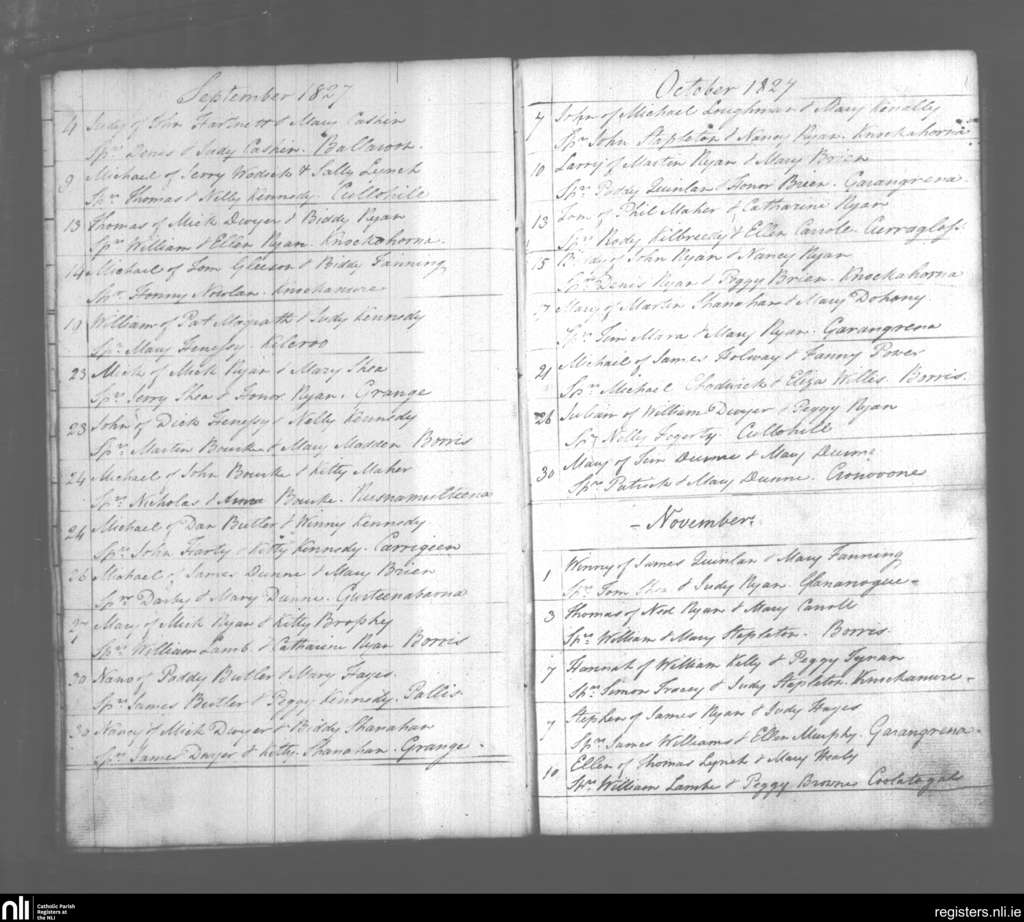 September 1827
4 Judy of John Hartnett & Mary Cashin
Sprs Denis & Judy Cashin. Ballavoon.
9 Michael of Jerry Wodick & Sally Lynch
Sprs Thomas & Nelly Kennedy. Cullohill
13 Thomas of Mick Dwyer & Biddy Ryan
Sprs William & Ellen Ryan. Knockahorna.
14 Michael of Tom Gleeson & Biddy Fanning
Spr. Fanny Nowlan. Knockanure
19 William of Pat Magrath & Judy Kennedy
Spr. Mary Fenessy. Kilcroo
23 Mick of Mick Ryan & Mary Shea
Sprs Jerry Shea & Honor Ryan. Grange
23 John of Dick Fenessy & Nelly Kennedy
Sprs Martin Bourke & Mary Madden Borris
24 Michael of John Bourke & Kitty Maher
Sprs Nicholas & Anne Bourke.
24 Michael of Dan Butler & Winny Kennedy
Sprs John Harty & Kitty Kennedy. Carrigeen
26 Michael of James Dunne & Mary Brien
Sprs Darby & Mary Dunne. Gurteenabarna
27 Mary of Mick Ryan & Kitty Brophy
Sprs William Lamb & Catharine Ryan Borris
30 Nano of Paddy Butler & Mary Hayes.
Sprs James Butler & Peggy Kennedy. Pallis
30 Nancy of Mick Dwyer & Biddy Shanahan
Sprs James Dwyer & Kitty Shanahan. Grange
October 1827
7 John of Michael Loughman & Mary Kenally
Sprs John Stapleton & Nancy Ryan. Knockahorna
10 Larry of Martin Ryan & Mary Brien
Sprs Paddy Quinlan & Honor Brien. Garangrena.
13 Tom of Phil Maher & Catharine Ryan
Sprs Rody Kilbreedy & Ellen Carrole. Curraglass.
15 Biddy of John Ryan & Nancy Ryan
Sprs Denis Ryan & Peggy Brien. Knockahorna
7 Mary of Martin Shanahan & Mary Dohany
Sprs Tim Mara & Mary Ryan. Garangrena
21 Michael of James Holway & Fanny Power
Sprs Michael Chadwick & Eliza Willis. Borris.
26 Julian of William Dwyer & Peggy Ryan
Spr Nelly Fogarty. Cullohill
30 Mary of Tim Dunne & Mary Dunne
Sprs Patrick & Mary Dunne. Cronovone
- November.
1 Winny of James Quinlan & Mary Fanning
Sprs Tom Shea & Judy Ryan. Glananogue -
3 Thomas of Ned Ryan & Mary Carroll
Sprs William & Mary Stapleton. Borris
7 Hannah of William Kelly & Peggy Tynan
Sprs Simon Tracey & Judy Stapleton. Knockanure -
7 Stephen of James Ryan & Judy Hayes
Sprs James Williams & Ellen Murphy. Garangrena.
10 Ellen of Thomas Lynch & Mary Healy
Sprs William Lambe & Peggy Browne Coolatagal
nli
Catholic Parish
Registers at
the NLI
registers.nli.ie